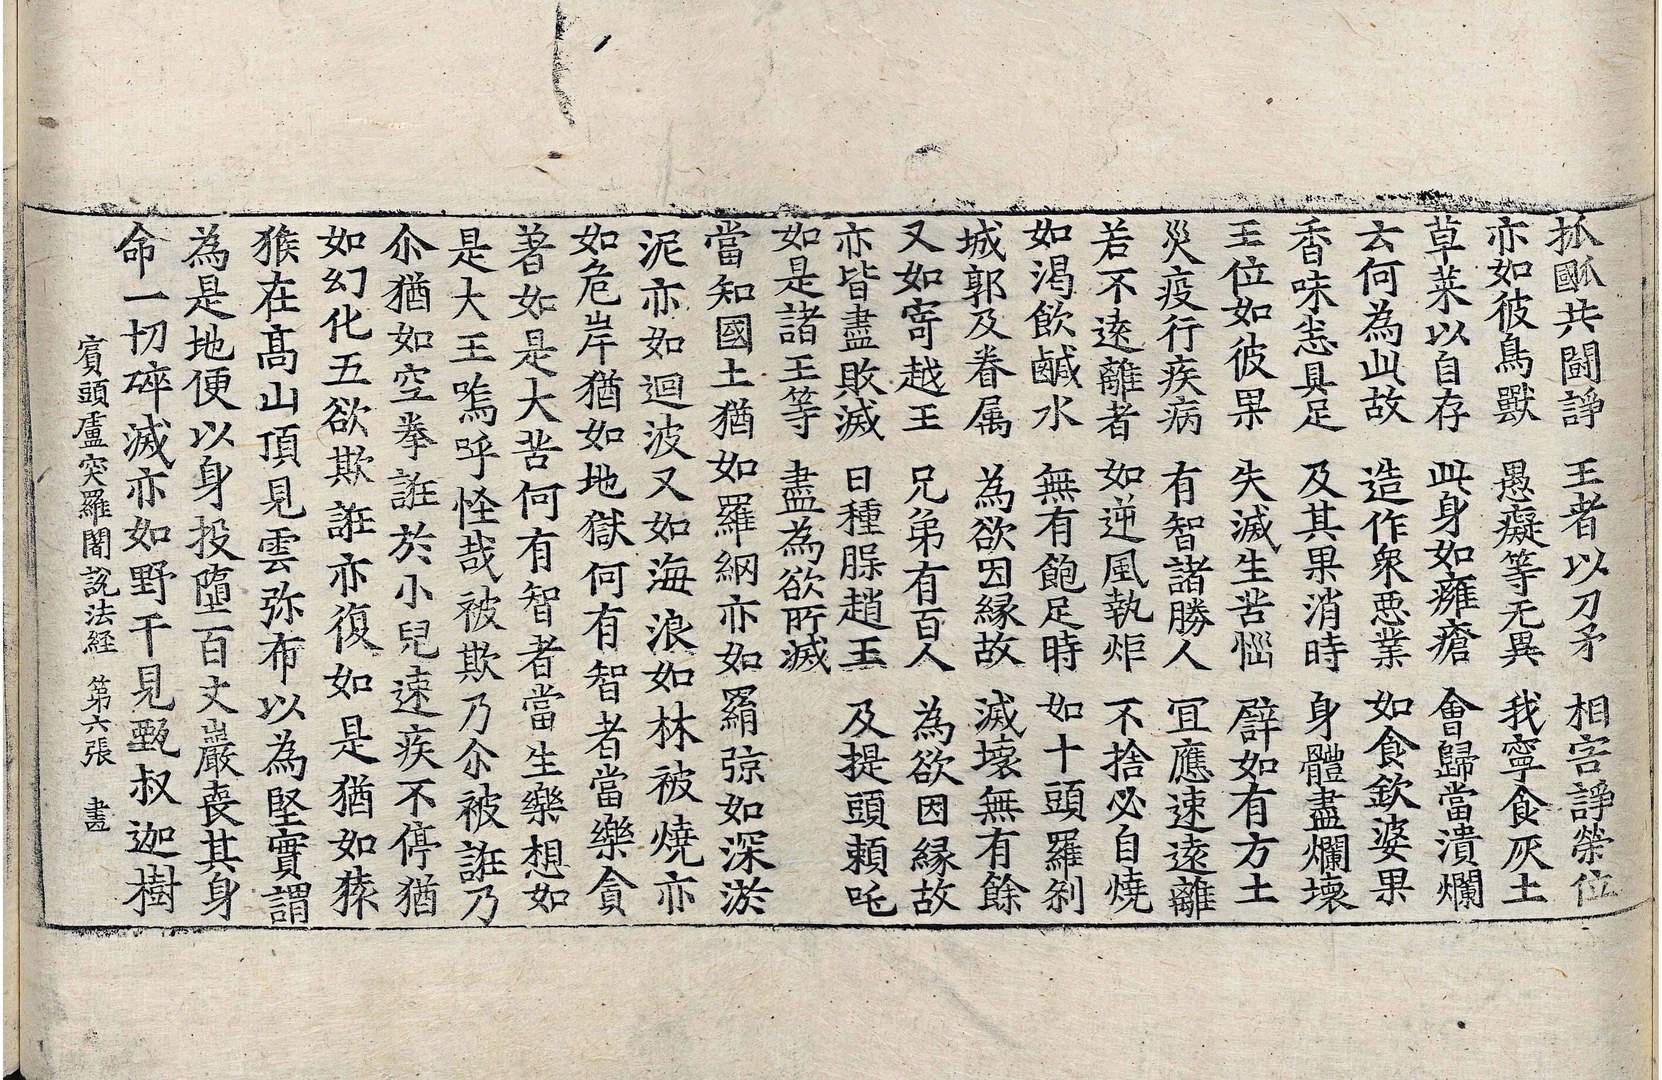 抓㼌共鬪諍　王者以刀矛　相害諍榮位
亦如彼鳥獸　愚癡等无異　我寧食灰土
草菜以自存　此身如癰瘡　會歸當潰爛
云何為此故　造作衆惡業　如食欽婆果
香味悉具足　及其果消時　身體盡爛壞
王位如彼果　失滅生苦惱　譬如有方土
災疫行疾病　有智諸勝人　冝應速遠離
若不遠離者　如逆風執炬　不捨必自燒
如渴飲鹹水　無有飽足時　如十頭羅剎
城郭及眷属　為欲因縁故　滅壞無有餘
又如寄越王　兄弟有百人　為欲因縁故
亦皆盡敗滅　日種脲趙王　及提頭頼吒
如是諸王等　盡為欲所滅
當知國土猶如羅網亦如羂弶如深淤
泥亦如迴波又如海浪如林被燒亦
如危岸猶如地獄何有智者當樂貪
著如是大苦何有智者當生樂想如
是大王嗚呼怪哉被欺乃尒被誑乃
尒猶如空拳誑於小兒速疾不停猶
如幻化五欲欺誑亦復如是猶如猿
猴在髙山頂見雲弥布以為堅實謂
為是地便以身投墮百丈巖喪其身
命一切碎滅亦如野干見甄叔迦樹
賓頭盧突羅闍說法經　第六張　晝